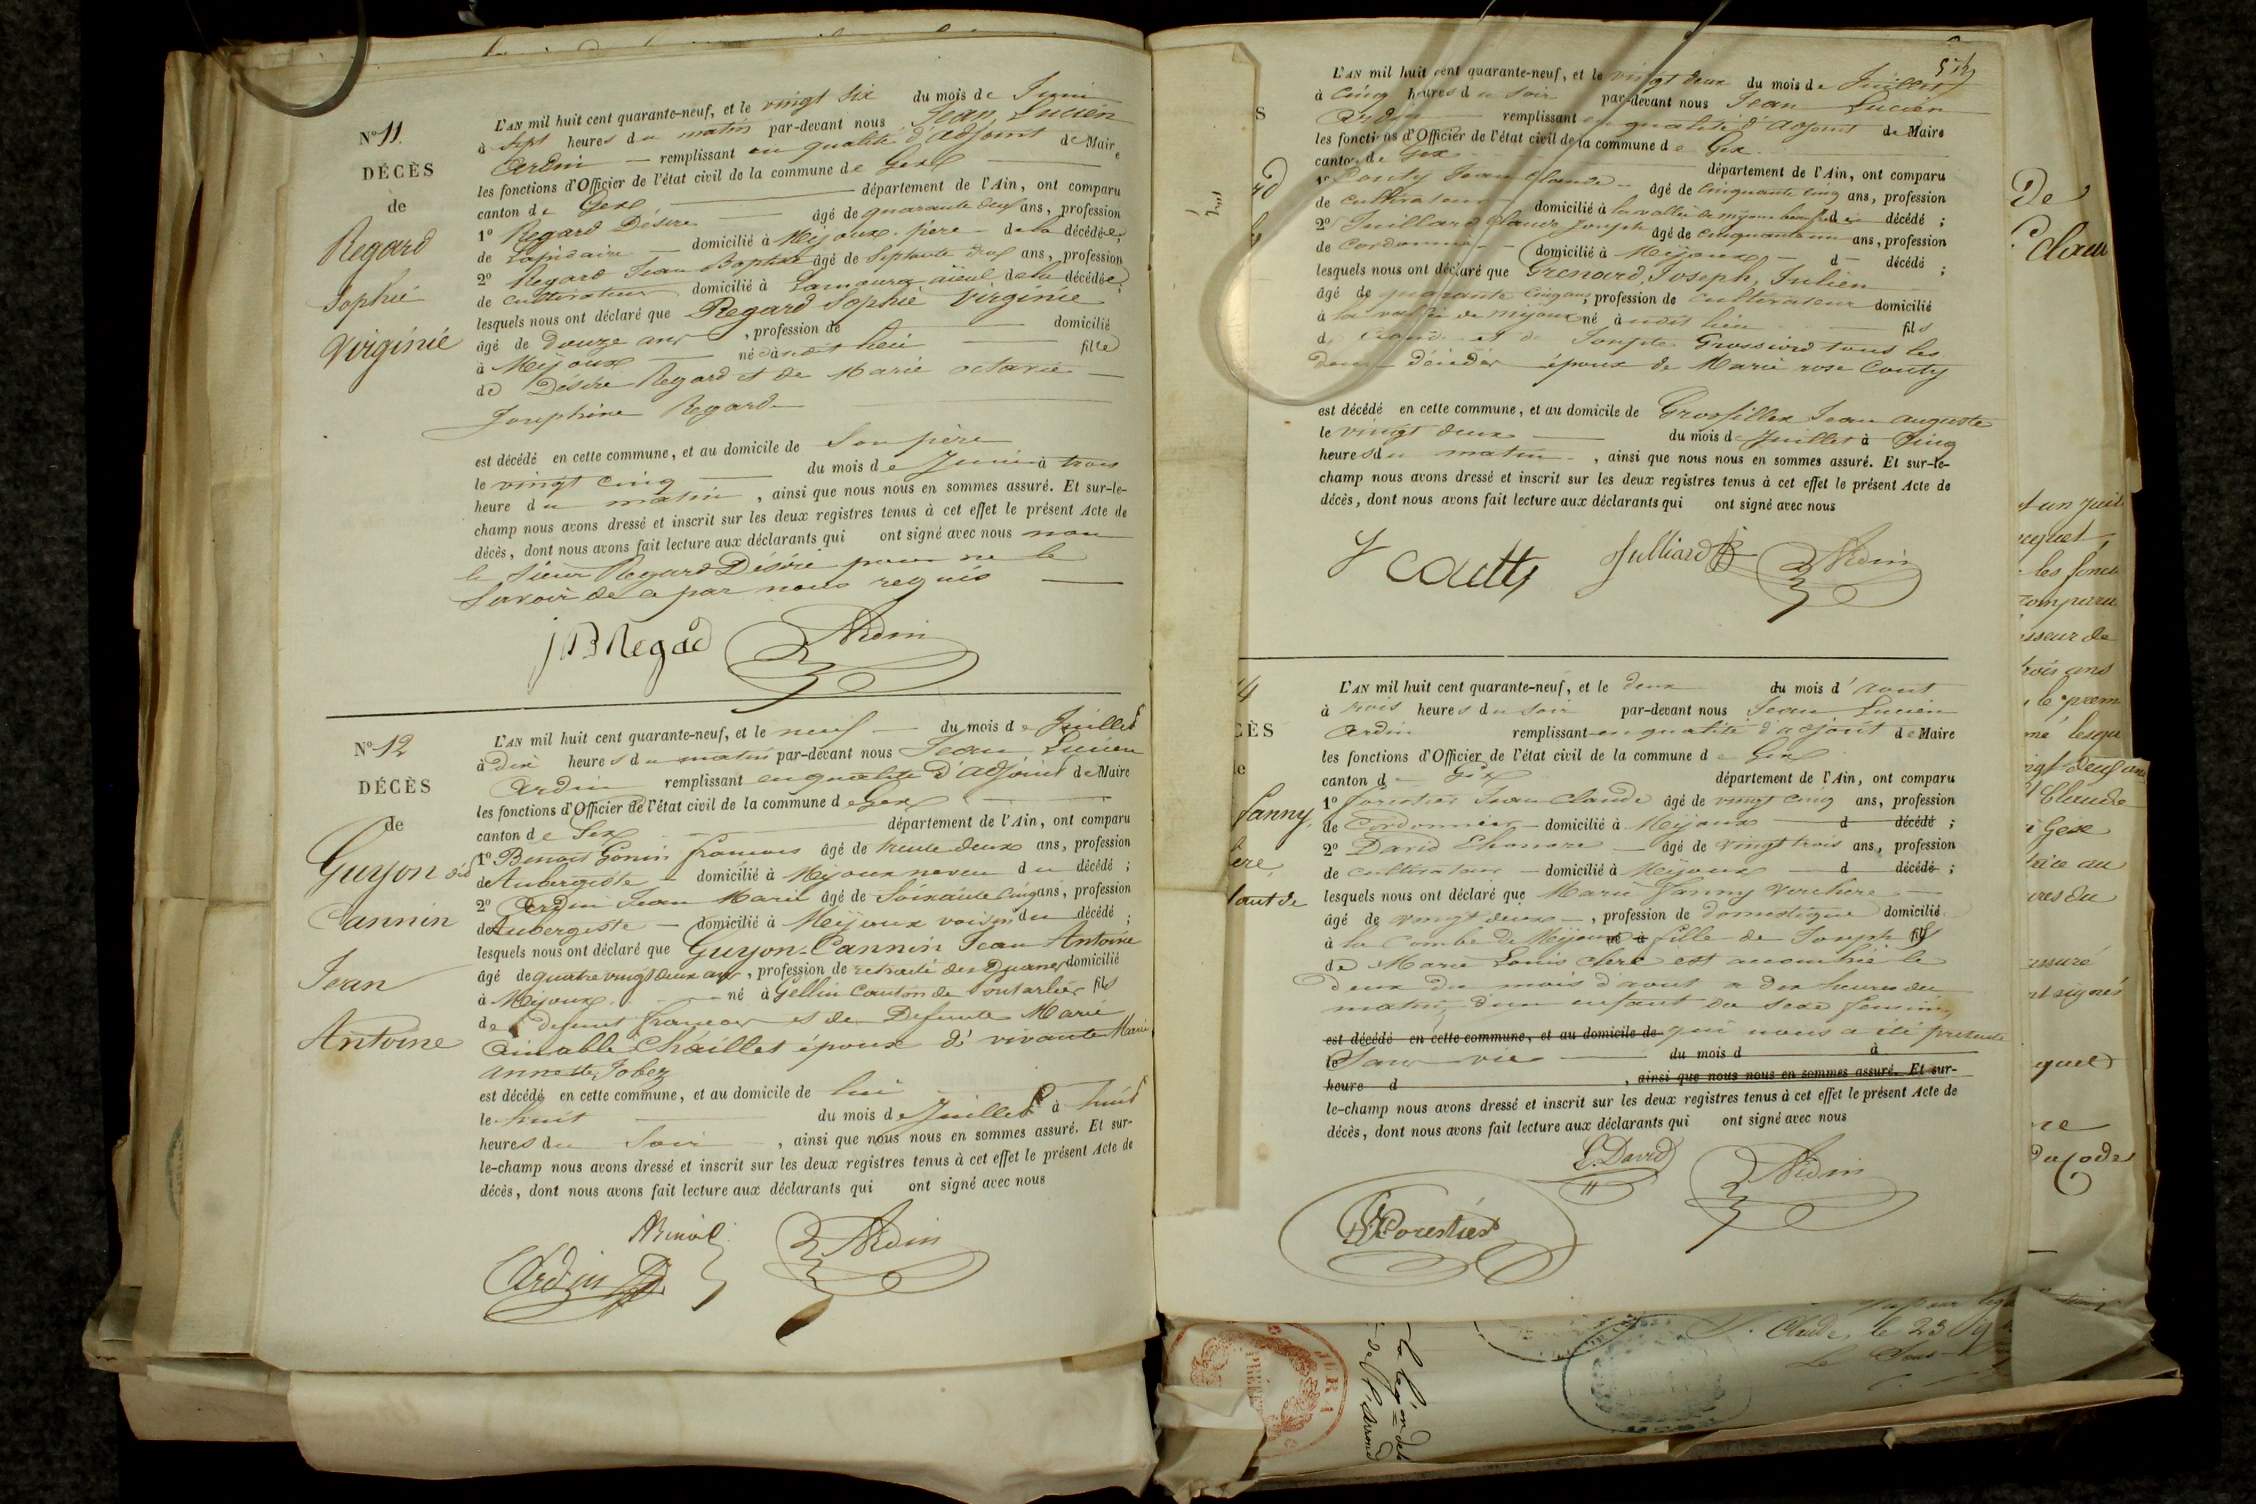 N° 11.
DÉCÈS
de
Regard
Sophie
Virginie
L'AN mil huit cent quarante-neuf, et le vingt six du mois de Juin
à sept heures du matin par-devant nous Jean Lucien
Ardin remplissant en qualité d'adjoint de Maire
les fonctions d'Officier de l'état civil de la commune de Gex
canton de Gex département de l'Ain, ont comparu
1° Regard Désiré âgé de quarante deux ans, profession
de Lapidaire domicilié à Mijoux père de la décédée
2° Regard Jean Baptiste âgé de septante deux ans, profession
de cultivateur domicilié à Lamoura aïeul de la décédée;
lesquels nous ont déclaré que Regard Sophie Virginie
âgé de douze ans, profession de domicilié
à Mijoux né à audit lieu fille
de Désiré Regard et de Marie octavie
Josephine Regard
est décédé en cette commune, et au domicile de Son père
le vingt cinq du mois de Juin à trois
heure du matin, ainsi que nous nous en sommes assuré. Et sur-le-
champ nous avons dressé et inscrit sur les deux registres tenus à cet effet le présent Acte de
décès, dont nous avons fait lecture aux déclarants qui ont signé avec nous non
le sieur Regard Désiré pour ne le
savoir de ce par nous requis
JB Regad Ardin
N° 12
DÉCÈS
de
Guyon dit
Cannin
Jean
Antoine
L'AN mil huit cent quarante-neuf, et le neuf du mois de Juillet
à dix heures du matin par-devant nous Jean Lucien
Ardin remplissant en qualité d'adjoint de Maire
les fonctions d'Officier de l'état civil de la commune de Gex
canton de Gex département de l'Ain, ont comparu
1° Benoit Gonin françois âgé de trente deux ans, profession
de Aubergiste domicilié à Mijoux neveu du décédé;
2° Ardin Jean Marie âgé de soixante cinq ans, profession
de Aubergiste domicilié à Mijoux voisin du décédé;
lesquels nous ont déclaré que Guyon-Cannin Jean Antoine
âgé de quatre vingt deux ans, profession de retraité des Douanes domicilié
à Mijoux né à Gellin Canton de Pontarlier fils
de défunt françois et de Defunte Marie
aimable Chaillet époux de vivante Marie
annette Jobez
est décédé en cette commune, et au domicile de lui
le huit du mois de Juillet à huit
heures du Soir, ainsi que nous nous en sommes assuré. Et sur-
le-champ nous avons dressé et inscrit sur les deux registres tenus à cet effet le présent Acte de
décès, dont nous avons fait lecture aux déclarants qui ont signé avec nous
Benoit
Ardin Ardin
L'AN mil huit cent quarante-neuf, et le vingt deux du mois de Juillet
à cinq heures du soir par-devant nous Jean Lucien
Ardin remplissant en qualité d'adjoint de Maire
les fonctions d'Officier de l'état civil de la commune de Gex
canton de Gex département de l'Ain, ont comparu
1° Couty Jean Claude âgé de cinquante cinq ans, profession
de cultivateur domicilié à la vallée de mijoux décédé;
2° Juillard Claude Joseph âgé de cinquante un ans, profession
de Cordonnier domicilié à Mijoux d décédé;
lesquels nous ont déclaré que Grenard, Joseph, Julien
âgé de quarante cinq ans, profession de cultivateur domicilié
à la vallée de mijoux né à audit lieu fils
de Claude et de Josephte Grossiord tous les
deux décédés époux de Marie rose Couty
est décédé en cette commune, et au domicile de Grosfillex Jean auguste
le vingt deux du mois de Juillet à Cinq
heures du matin, ainsi que nous nous en sommes assuré. Et sur-le-
champ nous avons dressé et inscrit sur les deux registres tenus à cet effet le présent Acte de
décès, dont nous avons fait lecture aux déclarants qui ont signé avec nous
J coutty Julliard Ardin
fanny,
L'AN mil huit cent quarante-neuf, et le deux du mois d'aout
à trois heures du soir par-devant nous Jean Lucien
Ardin remplissant en qualité d'adjoint de Maire
les fonctions d'Officier de l'état civil de la commune de Gex
canton de Gex département de l'Ain, ont comparu
1° forestier Jean Claude âgé de vingt cinq ans, profession
de Cordonnier domicilié à Mijoux d décédé;
2° David Eléonore âgé de vingt trois ans, profession
de cultivateur domicilié à Mijoux d décédé;
lesquels nous ont déclaré que Marie fanny verchere
âgé de vingt deux, profession de domestique domicilié
à la Combe de Mijoux né à fille de Joseph fils
de Marie Louis chere est accouchée le
deux du mois d'aout a dix heures du
matin, d'un enfant du sexe féminin,
est décédé en cette commune, et au domicile de qui nous a été présenté
le Sans vie du mois d à
heure d, ainsi que nous nous en sommes assuré. Et sur-
le-champ nous avons dressé et inscrit sur les deux registres tenus à cet effet le présent Acte de
décès, dont nous avons fait lecture aux déclarants qui ont signé avec nous
E. David Ardin
Forestier